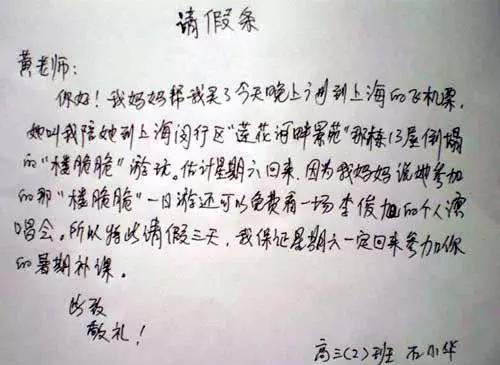 请假条
黄老师：
你好！我妈妈帮我买了今天晚上飞到上海的飞机票，
她叫我陪她到上海闵行区“莲花河畔景苑”那栋13层倒塌
的“楼脆脆”游玩。估计星期六回来，因为我妈妈说她参加
的那“楼脆脆”一日游还可以免费看一场李俊旭的个人演
唱会。所以特此请假三天，我保证星期六一定回来参加你
的暑期补课。
此致
敬礼！
高三（2）班 石小华